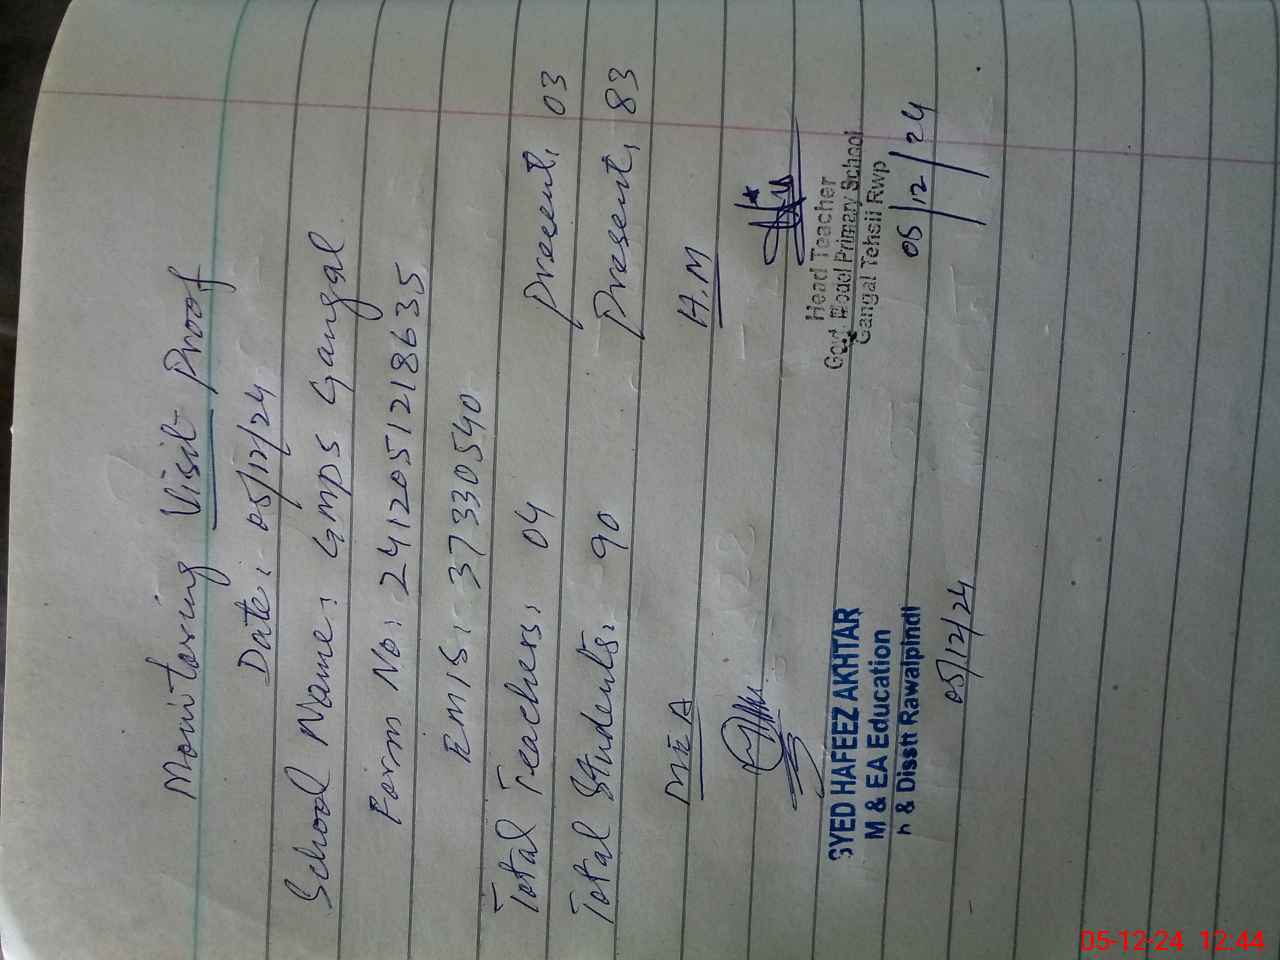 Monitoring Visit Proof
Date: 05/12/24
School Name: GMPS Gangal
Form No: 241205121218635
EMIS: 37330540
Total Teachers: 04 Present, 03
Total Students: 90 Present, 83
MEA H.M
SYED HAFEEZ AKHTAR
M & EA Education
h & Disstt Rawalpindi
05/12/24
Head Teacher
Govt Model Primary School
Gangal Tehsil Rwp
05/12/24
05-12-24 12:44